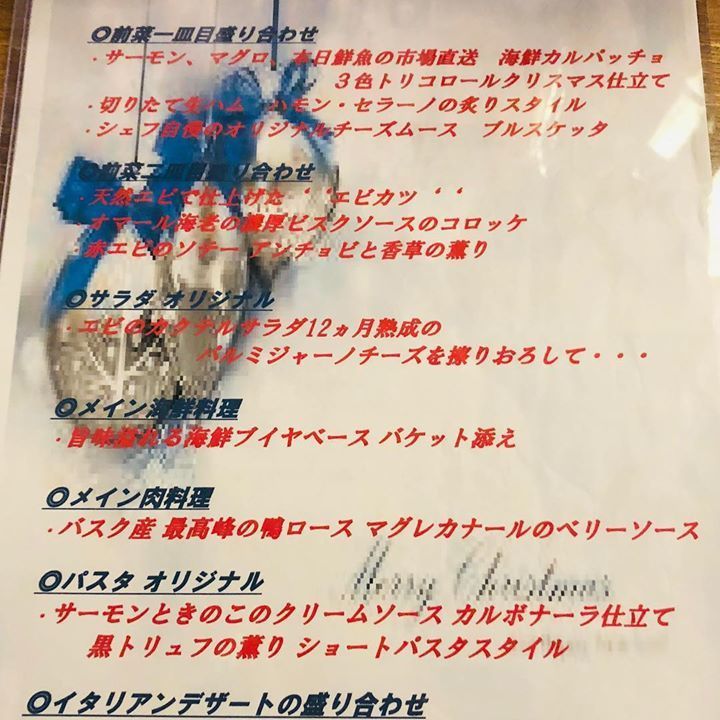 ◎前菜一皿目盛り合わせ
・サーモン、マグロ、本日鮮魚の市場直送　海鮮カルパッチョ
３色トリコロールクリスマス仕立て
・切りたて生ハム　ハモン・セラーノの炙りスタイル
・シェフ自慢のオリジナルチーズムース　ブルスケッタ
◎前菜二皿目盛り合わせ
・天然エビで仕上げた‘‘エビカツ‘‘
・オマール海老の濃厚ビスクソースのコロッケ
・赤エビのソテー アンチョビと香草の薫り
◎サラダ オリジナル
・エビのカクテルサラダ12ヵ月熟成の
パルミジャーノチーズを擦りおろして・・・
◎メイン海鮮料理
・旨味溢れる海鮮ブイヤベース バケット添え
◎メイン肉料理
・バスク産 最高峰の鴨ロース マグレカナールのベリーソース
Merry Christmas
◎パスタ オリジナル
・サーモンときのこのクリームソース カルボナーラ仕立て
黒トリュフの薫り ショートパスタスタイル
◎イタリアンデザートの盛り合わせ